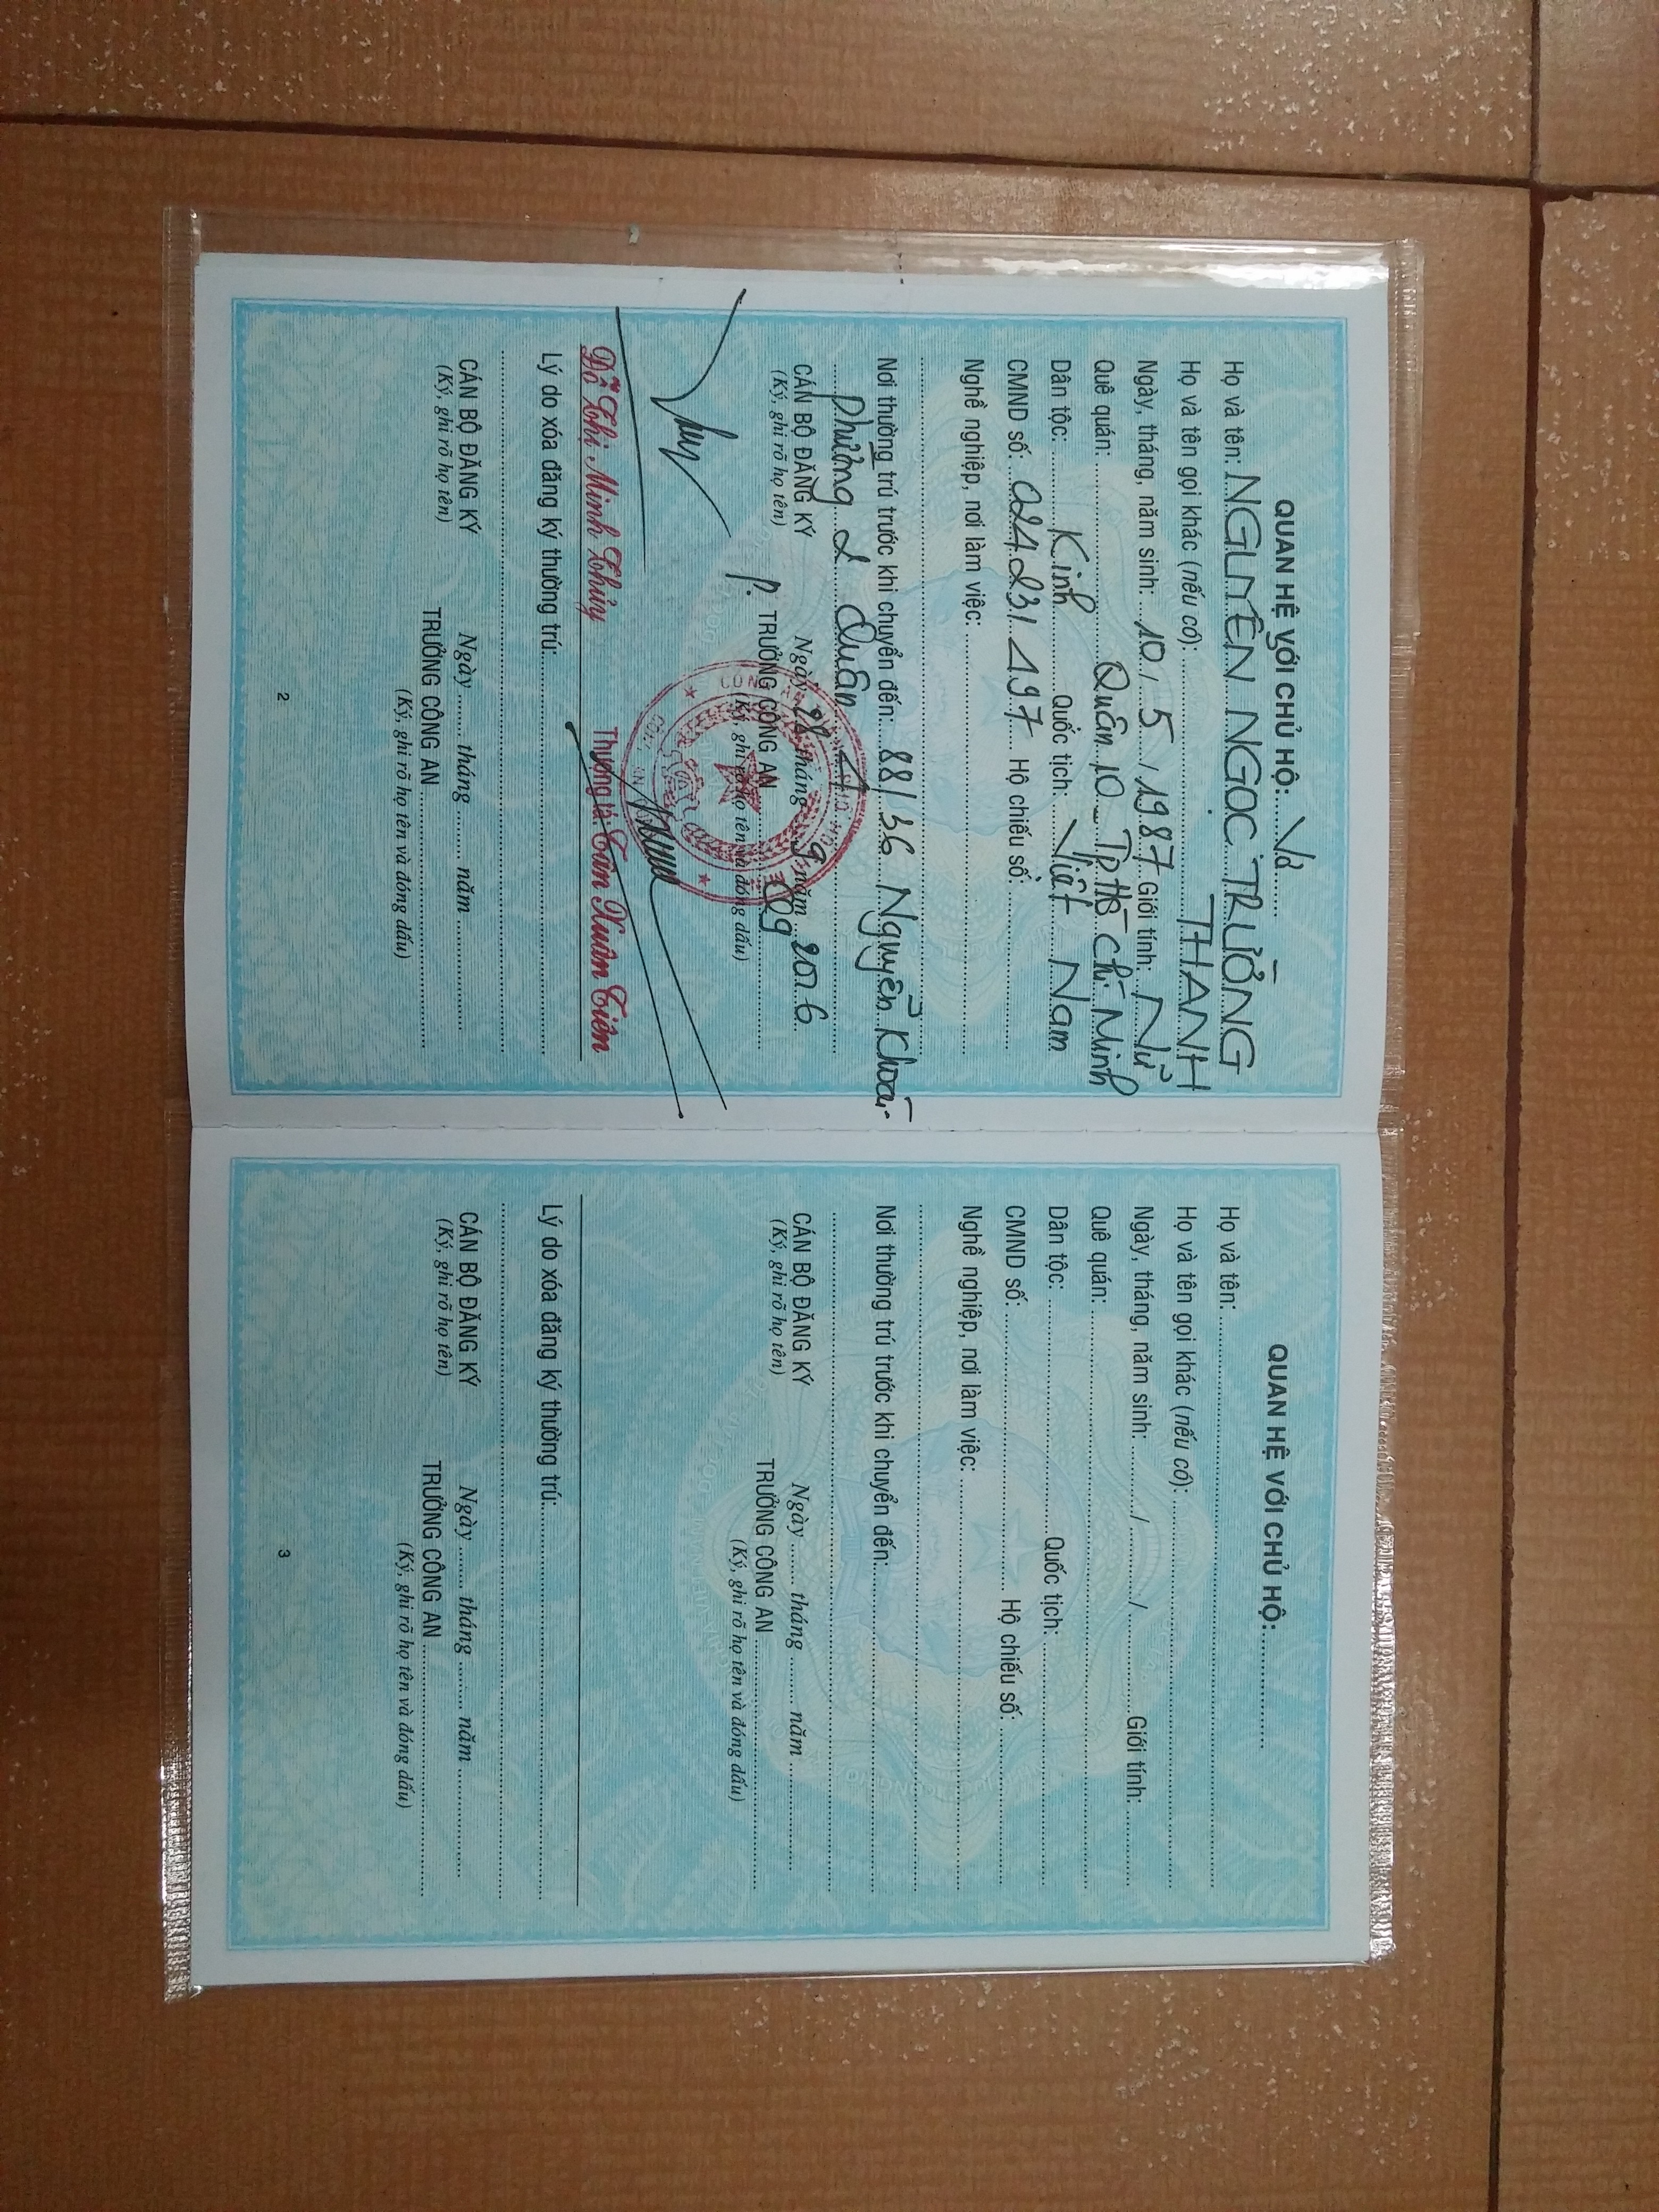 QUAN HỆ VỚI CHỦ HỘ: Vợ
Họ và tên: NGUYỄN NGỌC TRƯỜNG
Họ và tên gọi khác (nếu có): THANH
Ngày, tháng, năm sinh: 10 / 5 / 1987 Giới tính: Nữ
Quê quán: Quận 10 - TP Hồ Chí Minh
Dân tộc: Kinh Quốc tịch: Việt Nam
CMND số: 024 231 497 Hộ chiếu số:
Nghề nghiệp, nơi làm việc:
Nơi thường trú trước khi chuyển đến: 881 36 Nguyễn Khoái
phường 2 Quận 4
Ngày 28 tháng 9 năm 2016
CÁN BỘ ĐĂNG KÝ P. TRƯỞNG CÔNG AN Q9
(Ký, ghi rõ họ tên) (Ký, ghi rõ họ tên và đóng dấu)
Đỗ Thị Minh Thủy Thượng tá: Xuân
Lý do xóa đăng ký thường trú:
Ngày tháng năm
CÁN BỘ ĐĂNG KÝ TRƯỞNG CÔNG AN
(Ký, ghi rõ họ tên) (Ký, ghi rõ họ tên và đóng dấu)
2
QUAN HỆ VỚI CHỦ HỘ:
Họ và tên:
Họ và tên gọi khác (nếu có):
Ngày, tháng, năm sinh: / / Giới tính:
Quê quán:
Dân tộc: Quốc tịch:
CMND số: Hộ chiếu số:
Nghề nghiệp, nơi làm việc:
Nơi thường trú trước khi chuyển đến:
Ngày tháng năm
CÁN BỘ ĐĂNG KÝ TRƯỞNG CÔNG AN
(Ký, ghi rõ họ tên) (Ký, ghi rõ họ tên và đóng dấu)
Lý do xóa đăng ký thường trú:
Ngày tháng năm
CÁN BỘ ĐĂNG KÝ TRƯỞNG CÔNG AN
(Ký, ghi rõ họ tên) (Ký, ghi rõ họ tên và đóng dấu)
3